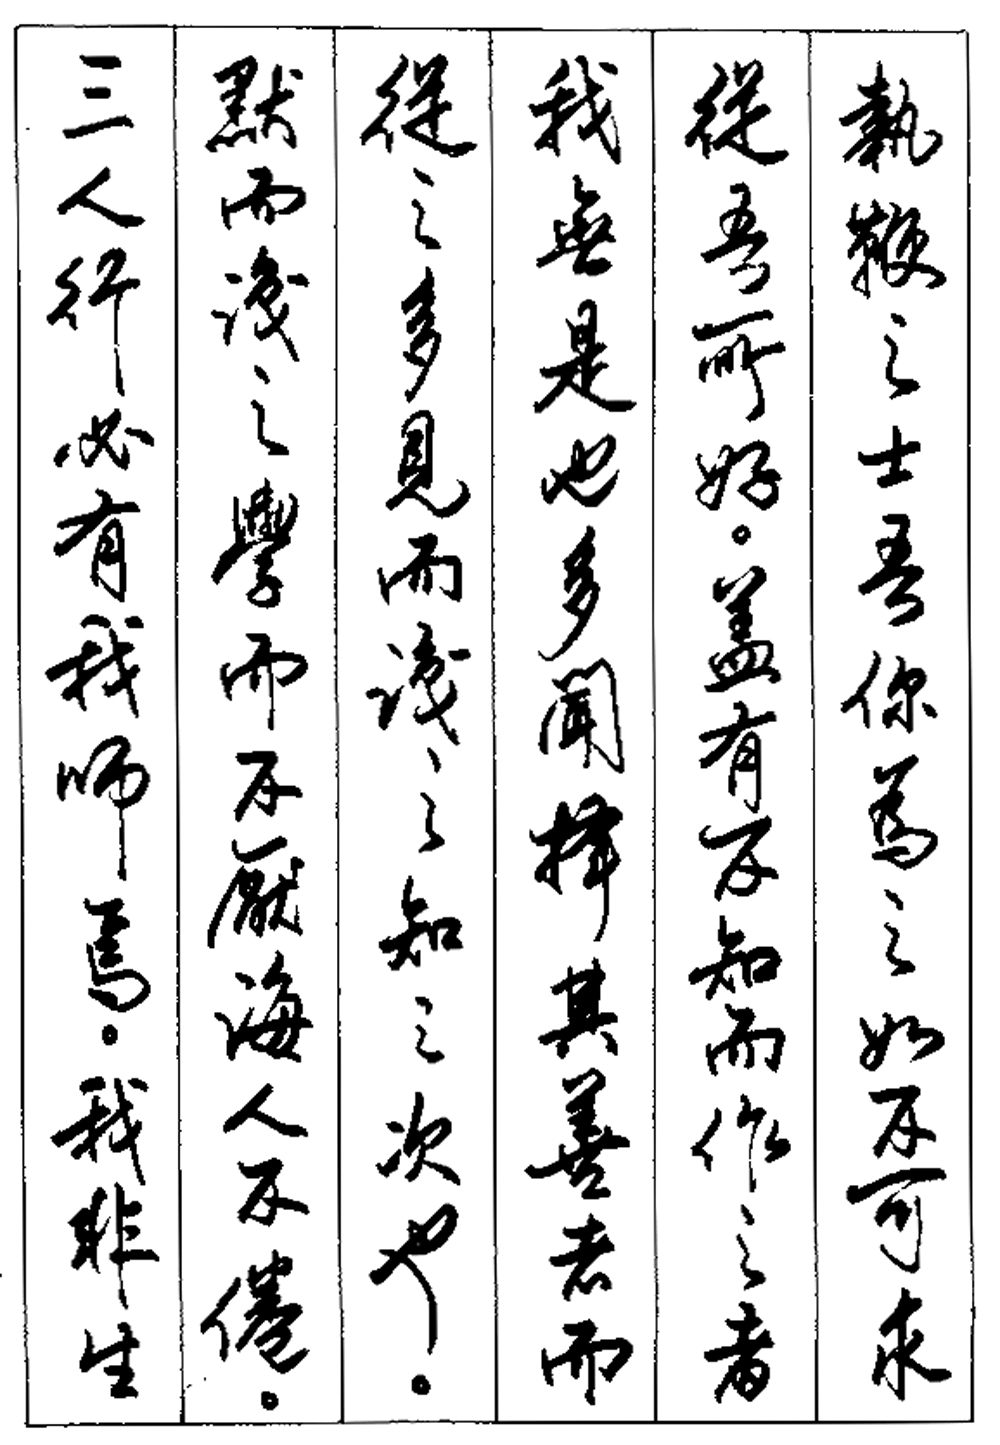 執鞭之士吾亦為之如不可求
從吾所好。蓋有不知而作之者
我無是也多聞擇其善者而
從之多見而識之知之次也。
默而識之學而不厭誨人不倦。
三人行必有我師焉。我非生